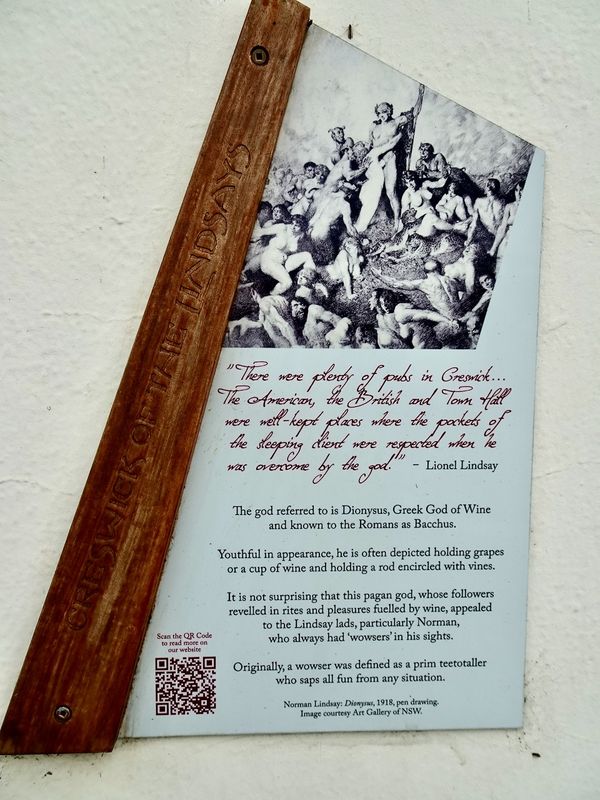 CRESWICK OF THE LINDSAYS
"There were plenty of pubs in Creswick...
The American, the British and Town Hall
were well-kept places where the pockets of
the sleeping client were respected when he
was overcome by the god." – Lionel Lindsay
The god referred to is Dionysus, Greek God of Wine
and known to the Romans as Bacchus.
Youthful in appearance, he is often depicted holding grapes
or a cup of wine and holding a rod encircled with vines.
It is not surprising that this pagan god, whose followers
revelled in rites and pleasures fuelled by wine, appealed
to the Lindsay lads, particularly Norman,
who always had 'wowsers' in his sights.
Originally, a wowser was defined as a prim teetotaller
who saps all fun from any situation.
Scan the QR Code
to read more on
our website
Norman Lindsay: Dionysus, 1918, pen drawing.
Image courtesy Art Gallery of NSW.